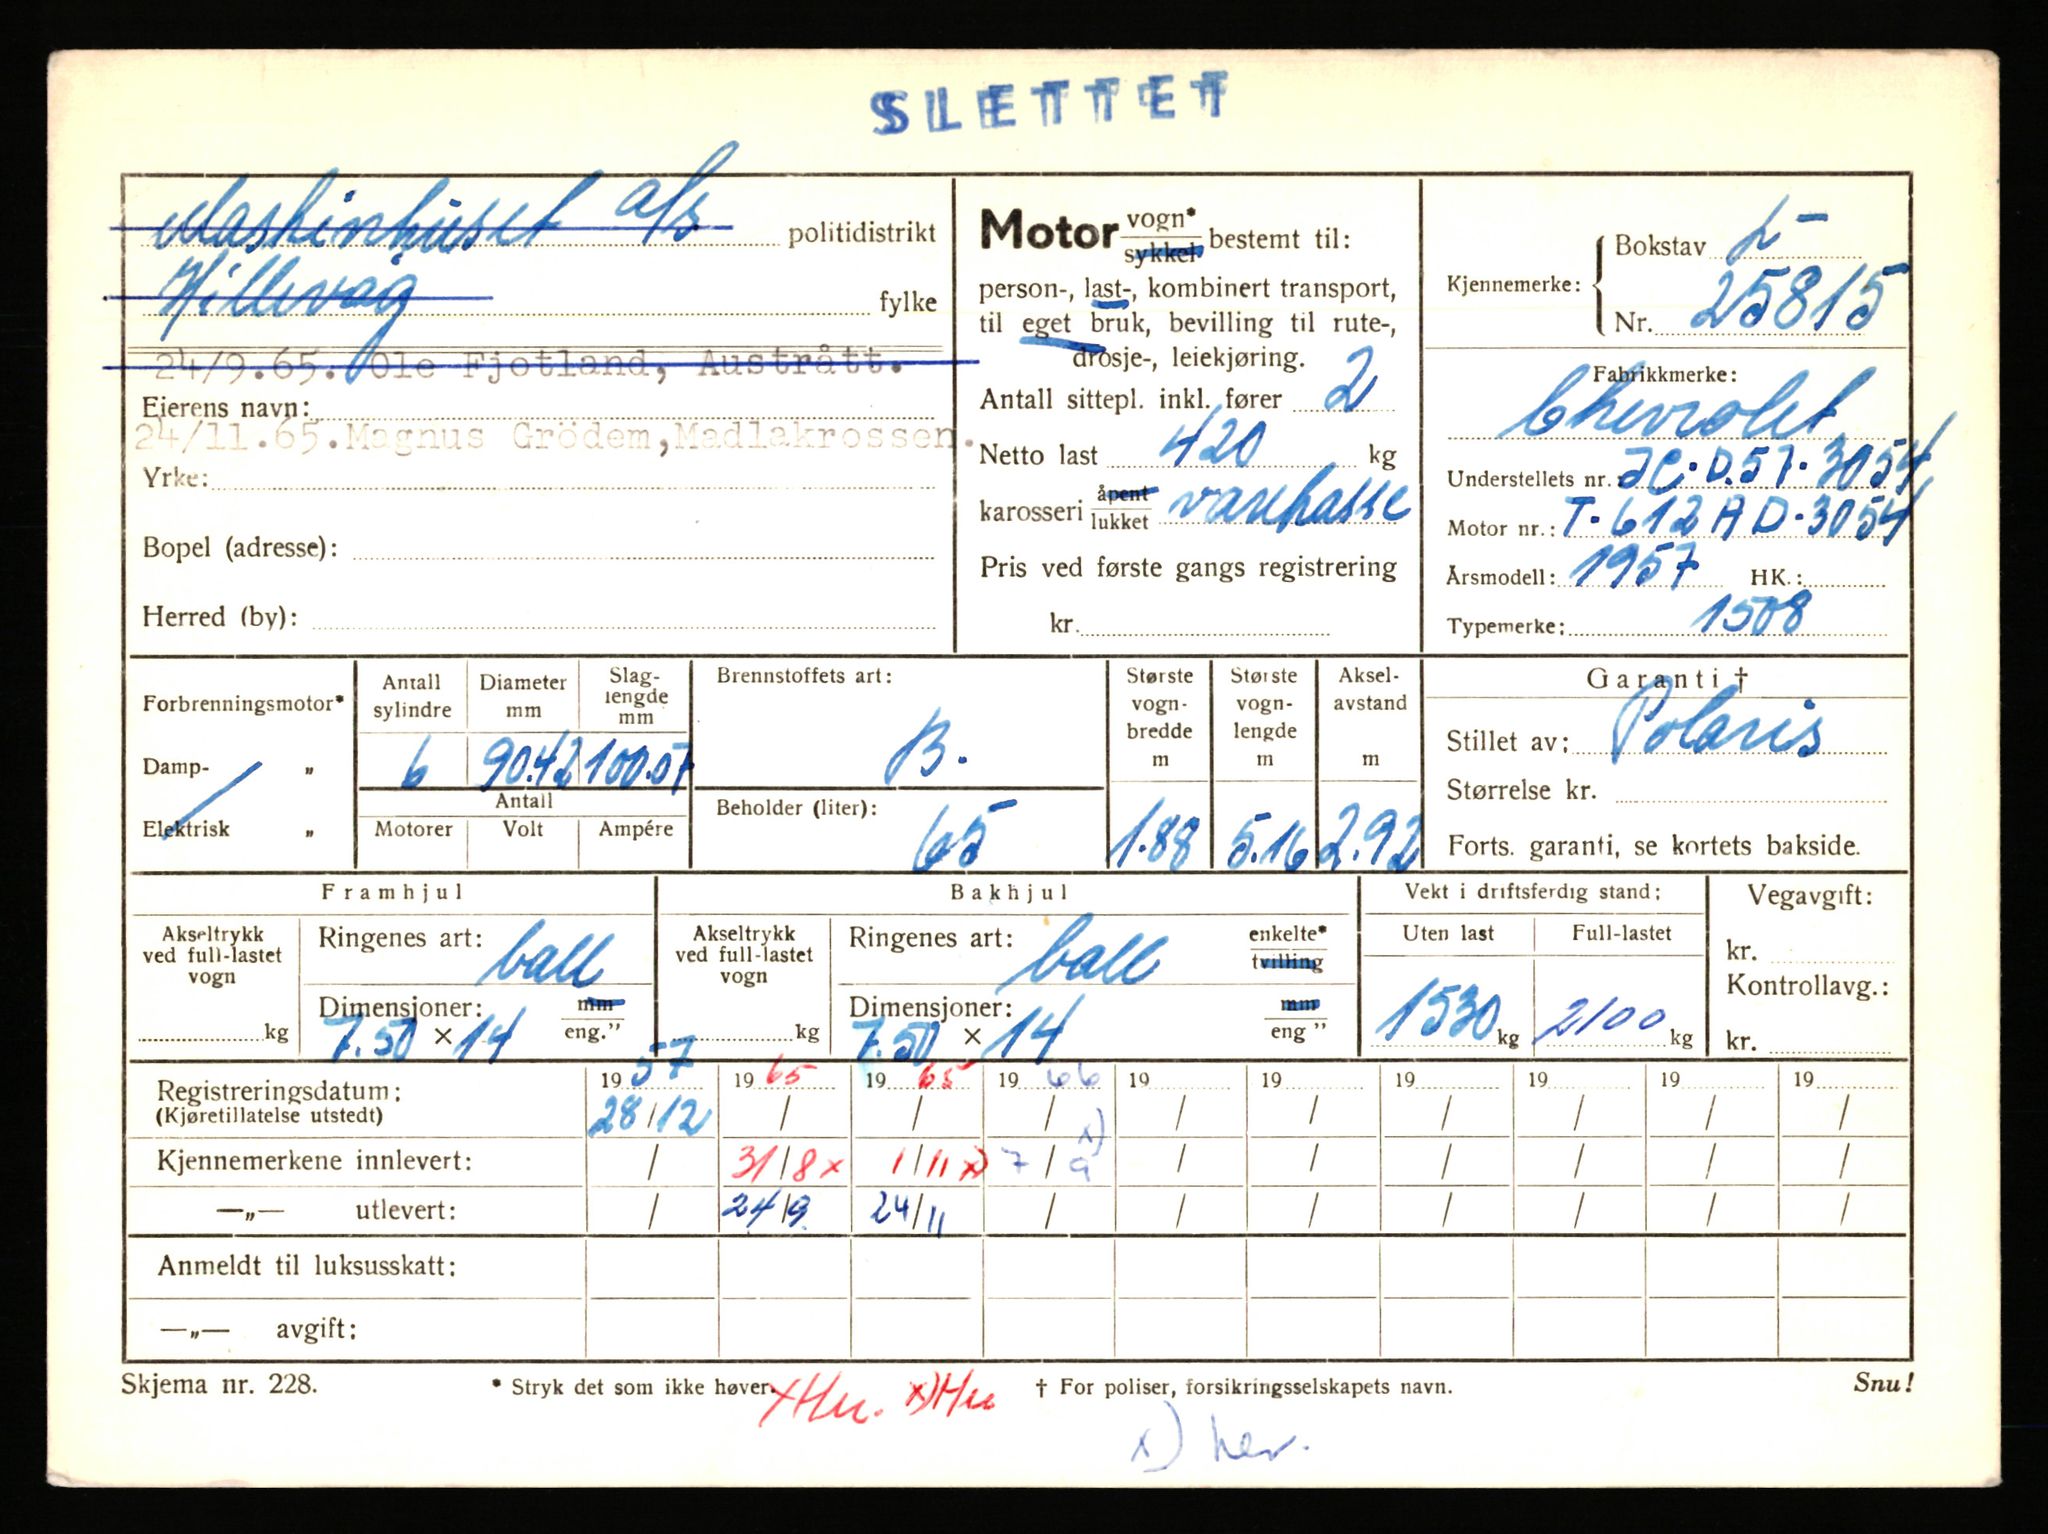 SLETTET
Maskinhuset a/s politidistrikt
Hillevåg fylke
24/9.65. Ole Fjotland, Austrått.
Eierens navn:
24/11.65. Magnus Grödem, Madlakrossen.
Yrke:
Bopel (adresse):
Herred (by):
Motor vogn* sykkel bestemt til:
person-, last-, kombinert transport,
til eget bruk, bevilling til rute-,
drosje-, leiekjøring.
Antall sittepl. inkl. fører 2
Netto last 420 kg
karosseri åpent lukket varekasse
Pris ved første gangs registrering
kr.
Kjennemerke: Bokstav L-
Nr. 25815
Fabrikkmerke:
Chevrolet
Understellets nr.: JC-D.57-3054
Motor nr.: T-612AD-3054
Årsmodell: 1957 HK.:
Typemerke: 1508
Forbrenningsmotor*
Damp- „
Elektrisk „
Antall sylindre 6
Diameter mm 90.42
Slaglengde mm 100.07
Antall
Motorer Volt Ampére
Brennstoffets art:
B.
Beholder (liter):
65
Største vogn-bredde m 1.88
Største vogn-lengde m 5.16
Aksel-avstand m 2.92
Garanti †
Stillet av: Polaris
Størrelse kr.
Forts. garanti, se kortets bakside.
Framhjul
Akseltrykk ved full-lastet vogn kg
Ringenes art: ball
Dimensjoner: mm
7.50 × 14 eng."
Bakhjul
Akseltrykk ved full-lastet vogn kg
Ringenes art: ball enkelte* tvilling
Dimensjoner: mm
7.50 × 14 eng"
Vekt i driftsferdig stand:
Uten last Full-lastet
1530 kg 2100 kg
Vegavgift:
kr.
Kontrollavg.:
kr.
Registreringsdatum: 1957 1965 1965 1966 19 19 19 19 19 19
(Kjøretillatelse utstedt) 28/12 / / / / / / / / /
Kjennemerkene innlevert: / 31/8 x 1/11 x) 7/9 x) / / / / / /
—„— utlevert: / 24/9. 24/11 / / / / / / /
Anmeldt til luksusskatt:
—„— avgift:
Skjema nr. 228. * Stryk det som ikke høver. † For poliser, forsikringsselskapets navn. Snu!